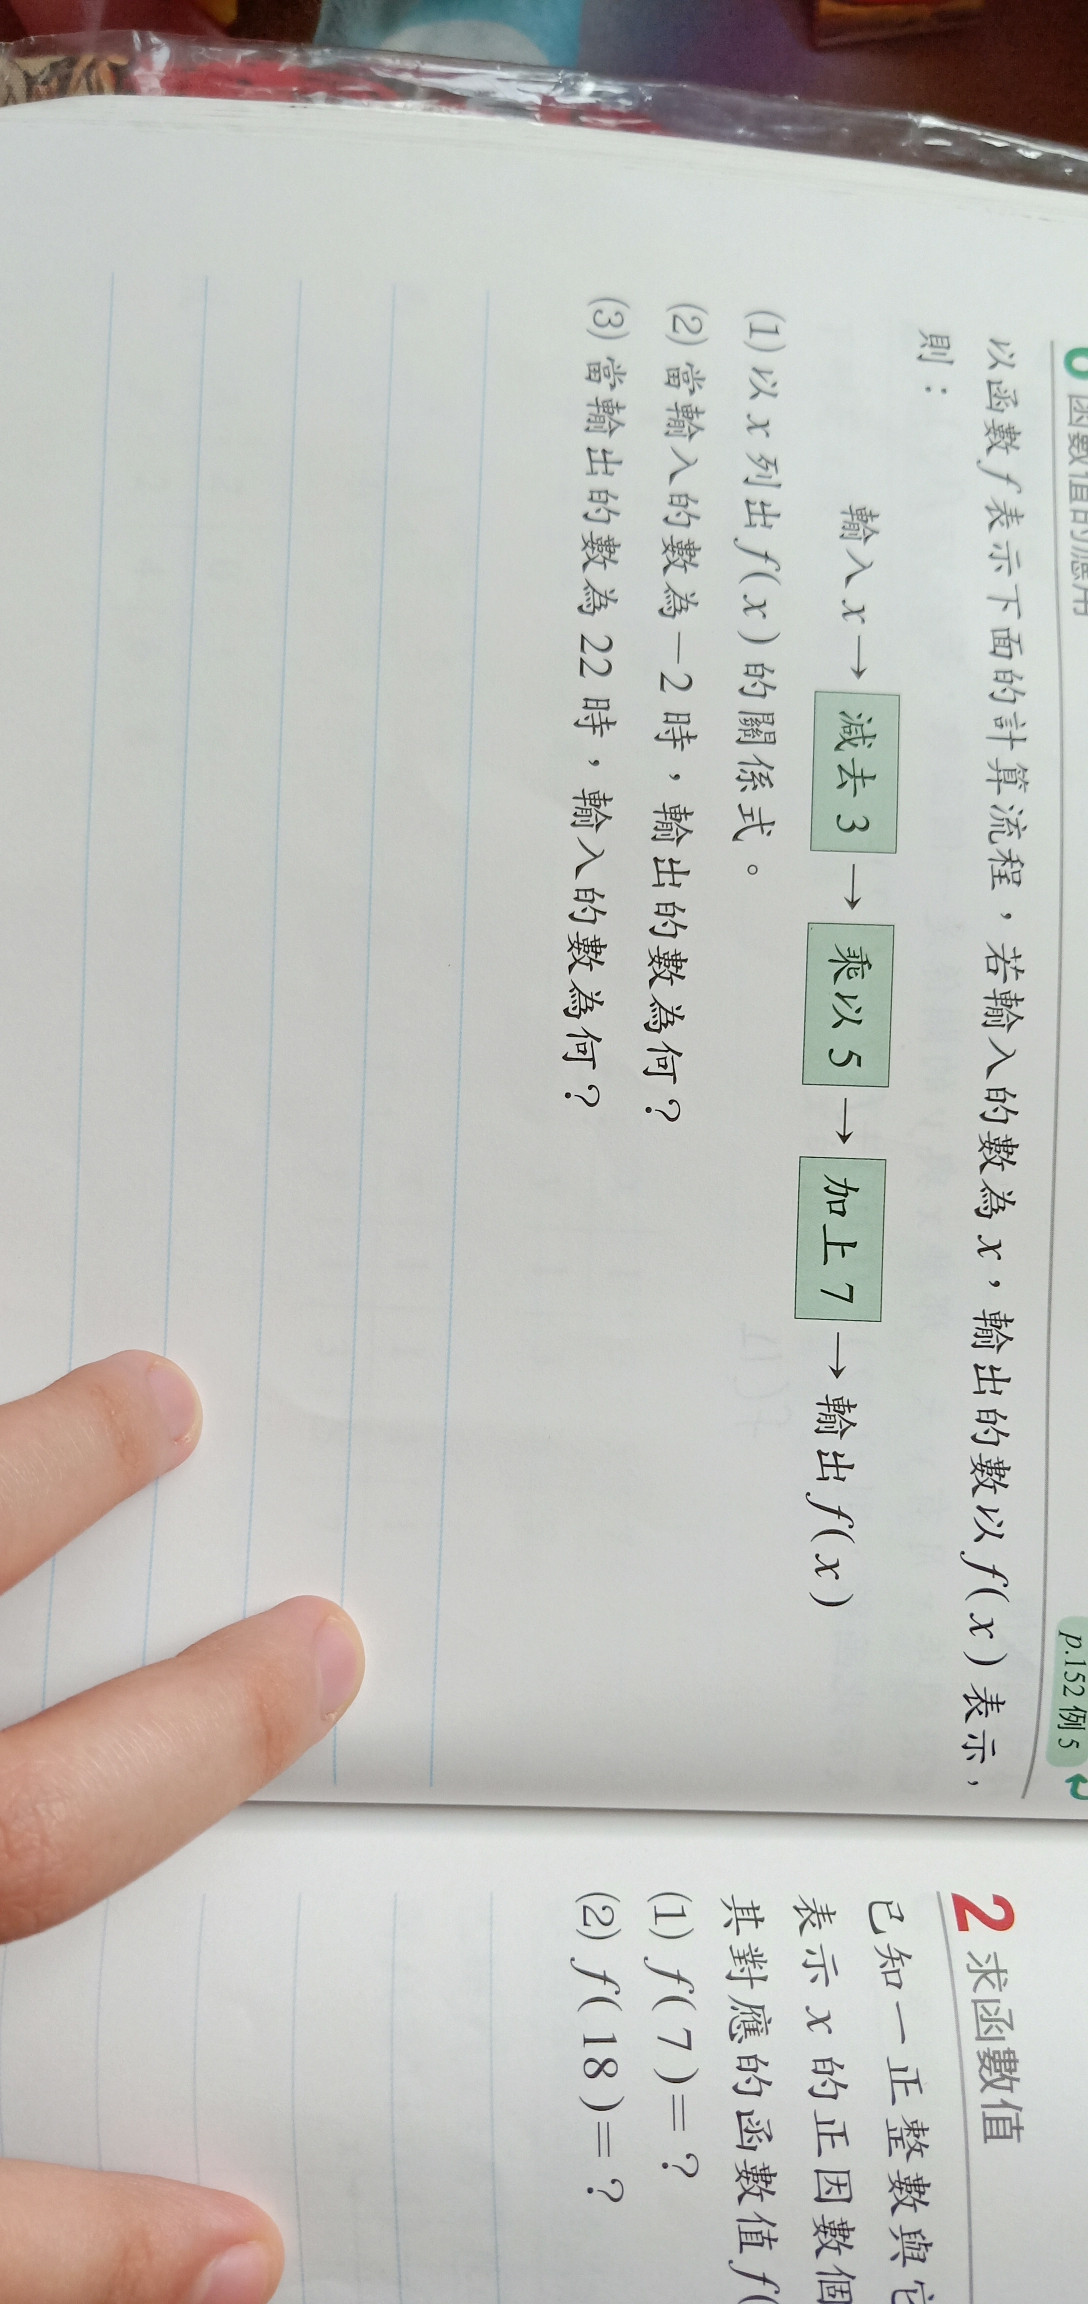 6 函數值的應用
p.152 例 5
以函數 f 表示下面的計算流程，若輸入的數為 x，輸出的數以 f(x) 表示，
則：
輸入 x → 減去 3 → 乘以 5 → 加上 7 → 輸出 f(x)
(1) 以 x 列出 f(x) 的關係式。
(2) 當輸入的數為 －2 時，輸出的數為何？
(3) 當輸出的數為 22 時，輸入的數為何？
2 求函數值
已知一正整數與它
表示 x 的正因數個
其對應的函數值 f(
(1) f(7)＝？
(2) f(18)＝？